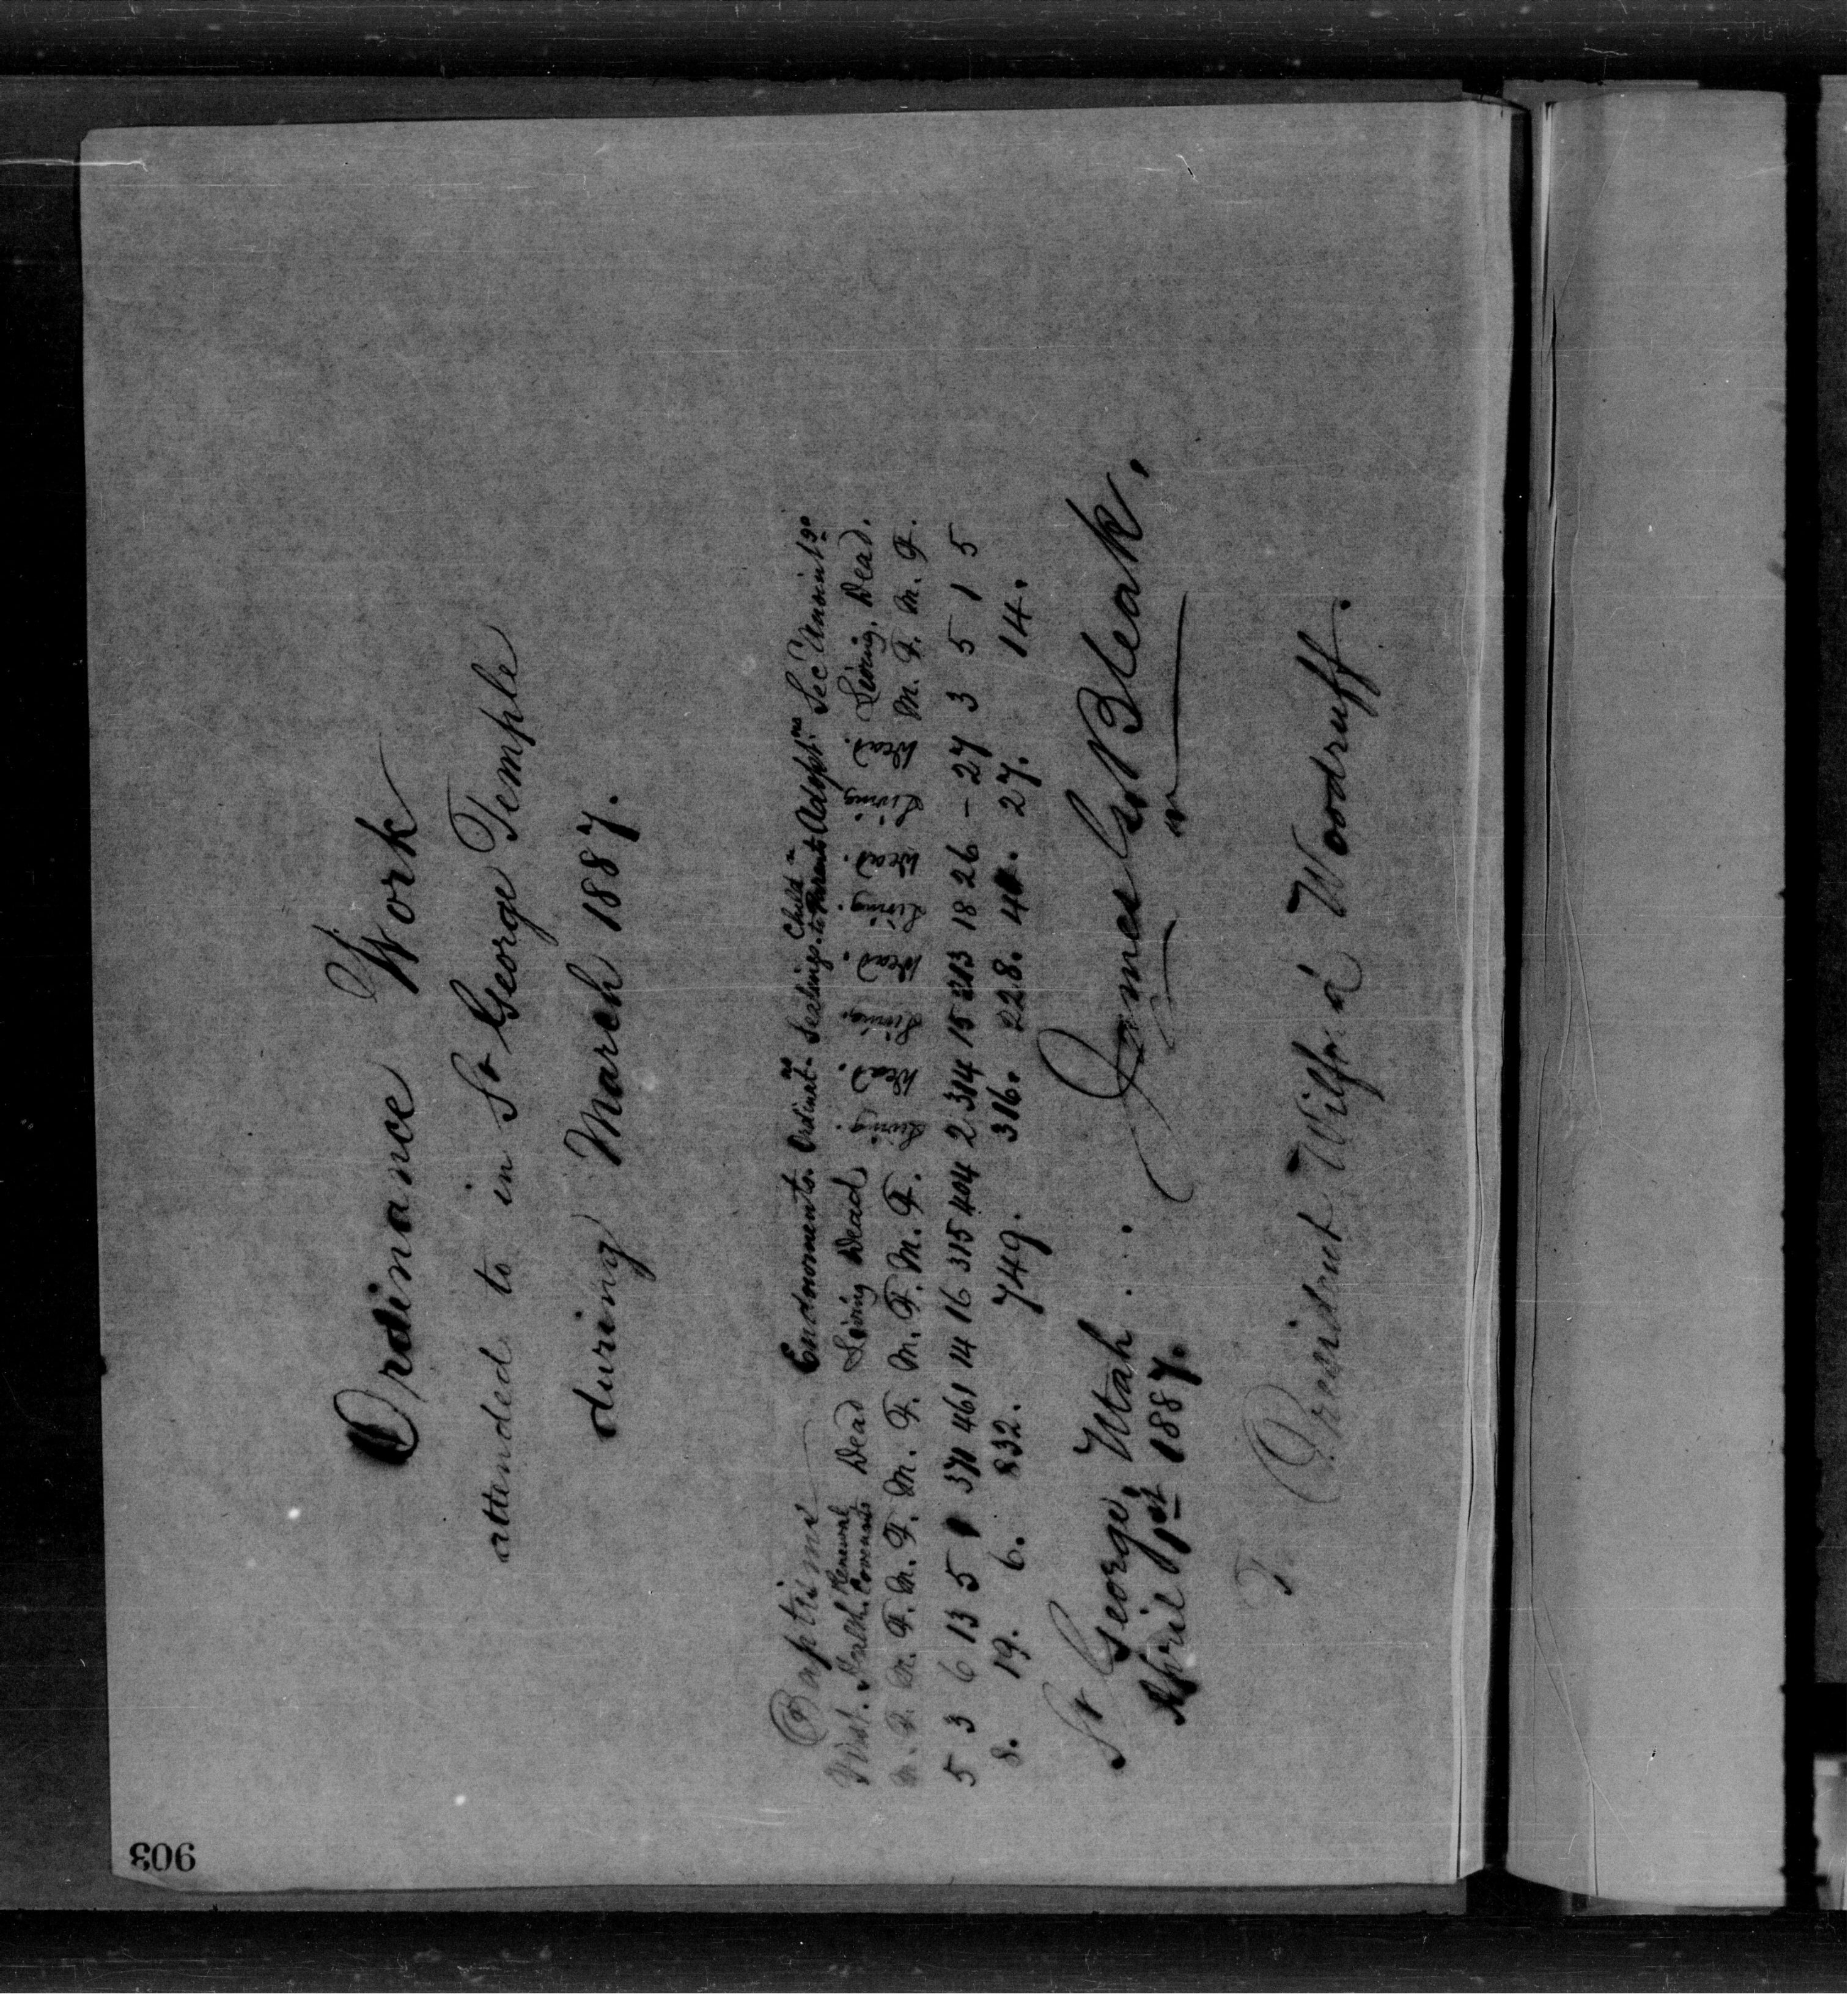 903
Ordinance Work
attended to in St George Temple
during March 1887.
Baptisms Endowments. Ordinat.ns Sealings. Childn to Parents Adopt.ns Sec Anoint.gs
First. Health. Renewal Covenants Dead Living Dead Living. Dead. Living. Dead. Living. Dead. Living Dead. Living. Dead.
M. F. M. F. M. F. M. F. M. F. M. F. M. F. M. F.
5 3 6 13 5 1 371 461 14 16 315 404 2 314 15 213 18 26 - 27 3 5 1 5
8. 19. 6. 832. 749. 316. 228. 44. 27. 14.
St George, Utah
April 1st 1887.
James G. Bleak.
To President Wilford Woodruff.